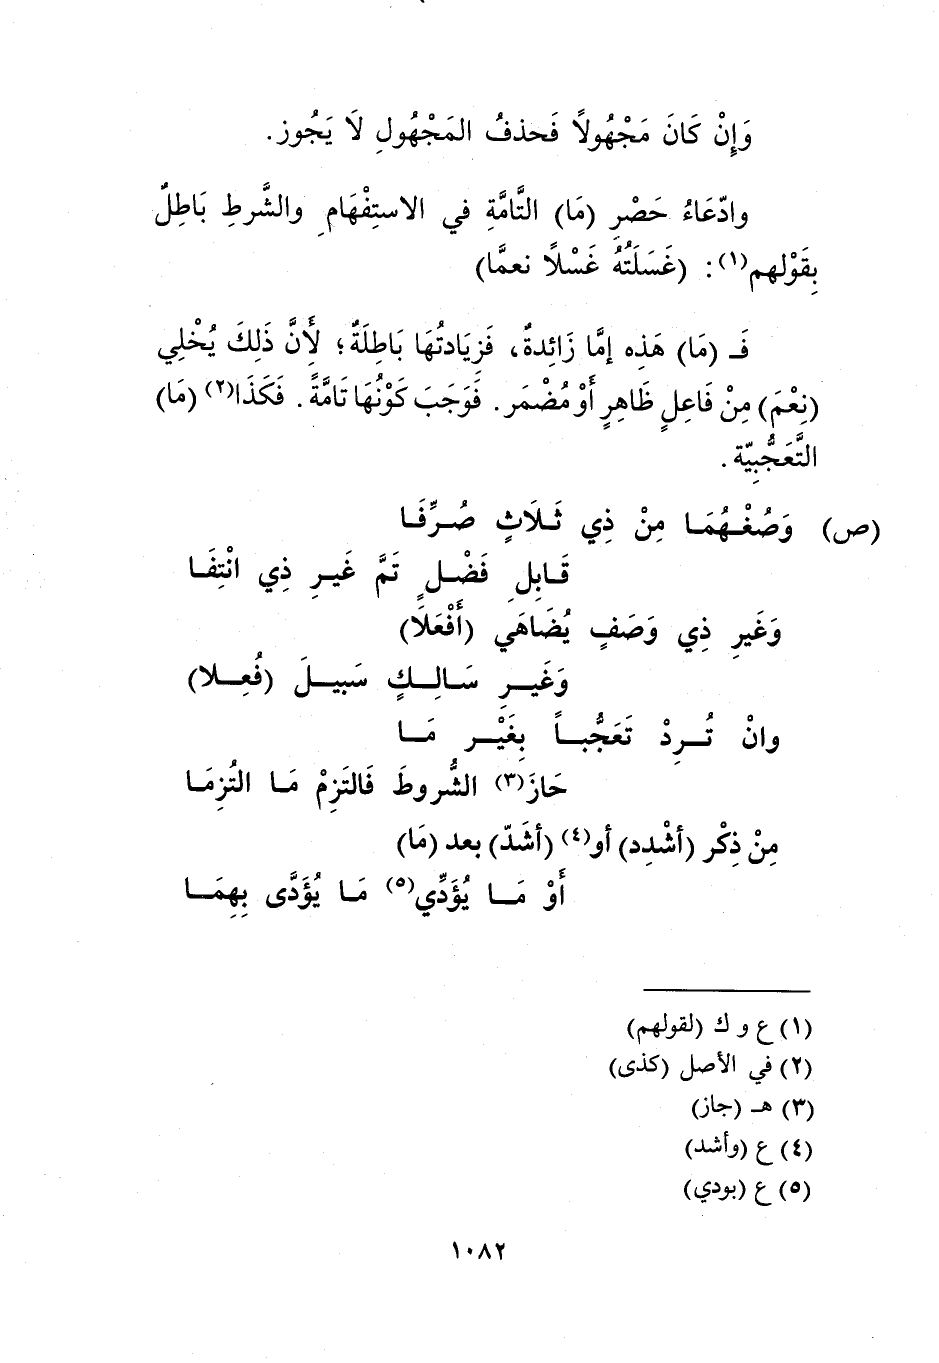 وَإِنْ كَانَ مَجْهُولاً فَحذفُ المَجْهُولِ لَا يَجُوز.
وادّعَاءُ حَصْرِ (مَا) التَّامَّةِ في الاستِفْهَامِ والشَّرطِ بَاطِلٌ
بِقَوْلهم(١): (غَسَلَتُهُ غَسْلًا نعمَّا)
فَـ (مَا) هَذِه إمَّا زَائِدةٌ، فَزيَادتُهَا بَاطِلَةٌ؛ لِأَنَّ ذَلِكَ يُخْلِي
(نِعْمَ) مِنْ فَاعِلٍ ظَاهِرٍ أَوْ مُضْمَر. فَوَجَبَ كَوْنُهَا تَامَّةً. فَكَذَا(٢) (مَا)
التَّعَجُّبِيّة.
(ص) وَصُغْهُمَا مِنْ ذِي ثَلَاثٍ صُرِّفَا
قَابِلِ فَضْلٍ تَمَّ غَيرِ ذِي انْتِفَا
وَغَيرِ ذِي وَصَفٍ يُضَاهَي (أَفْعَلَا)
وَغَيرِ سَالِكٍ سَبيلَ (فُعِلا)
وانْ تُرِدْ تَعَجُّباً بِغَيْرِ مَا
حَازَ(٣) الشُّروطَ فَالتَزِمْ مَا التُزِمَا
مِنْ ذِكْرِ (أشْدِد) أو(٤) (أشَدّ) بعد (مَا)
أَوْ مَا يُؤَدِّي(٥) مَا يُؤَدَّى بِهِمَا
(١) ع و ك (لقولهم)
(٢) في الأصل (كذى)
(٣) هـ (جاز)
(٤) ع (وأشد)
(٥) ع (بودي)
١٠٨٢